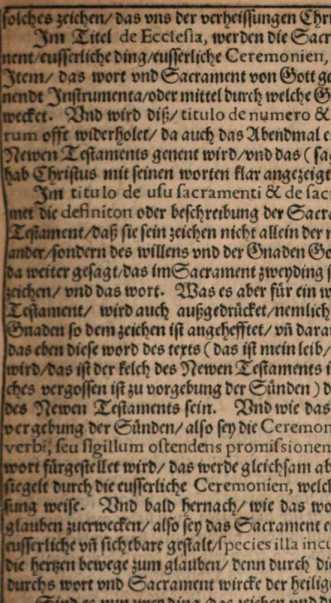 solches zeichen/ das vns der verheissungen Chri
Im Titel de Ecclesia, werden die Sacr
ment/eusserliche ding/eusserliche Ceremonien,
Item/ das wort vnd Sacrament von Gott ge
nendt Instrumenta/oder mittel durch welche G
wecket. Vnd wird diß/ titulo de numero &
rum offt widerholet/ da auch das Abendmal
Newen Testaments genent wird/vnd das (sa
hab Christus mit seinen worten klar angezeigt
Im titulo de usu sacramenti & de sac
met die definiton oder beschreibung der Sacr
Testament/ daß sie sein zeichen nicht allein der
ander/sondern des willens vnd der Gnaden Go
da weiter gesagt/das im Sacrament zweyding
zeichen/ vnd das wort. Was es aber für ein w
Testament/ wird auch außgedrücket/nemlich
Gnaden so dem zeichen ist angehefftet/ vñ dara
das eben diese word des texts (das ist mein leib/
wird/das ist der kelch des Newen Testaments i
ches vergossen ist zu vorgebung der Sünden) d
des Newen Testaments sein. Vnd wie das
vergebung der Sünden/ also sey die Ceremon
verbi, seu sigillum ostendens promissionem
wort fürgestellet wird/ das werde gleichsam ab
siegelt durch die eusserliche Ceremonien, welch
sung weise. Vnd bald hernach/ wie das wo
glauben zuerwecken/ also sey das Sacrament e
eusserliche vñ sichtbare gestalt/species illa incu
die hertzen bewege zum glauben/ denn durch die
durchs wort vnd Sacrament wircke der heilig